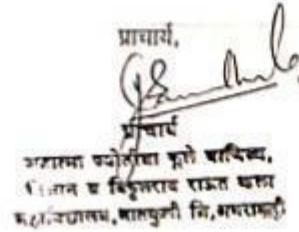 प्राचार्य,
प्राचार्य
महात्मा ज्योतीबा फुले वाणिज्य,
विज्ञान व विठ्ठलराव राऊत कला
महाविद्यालय, भातकुली जि. अमरावती